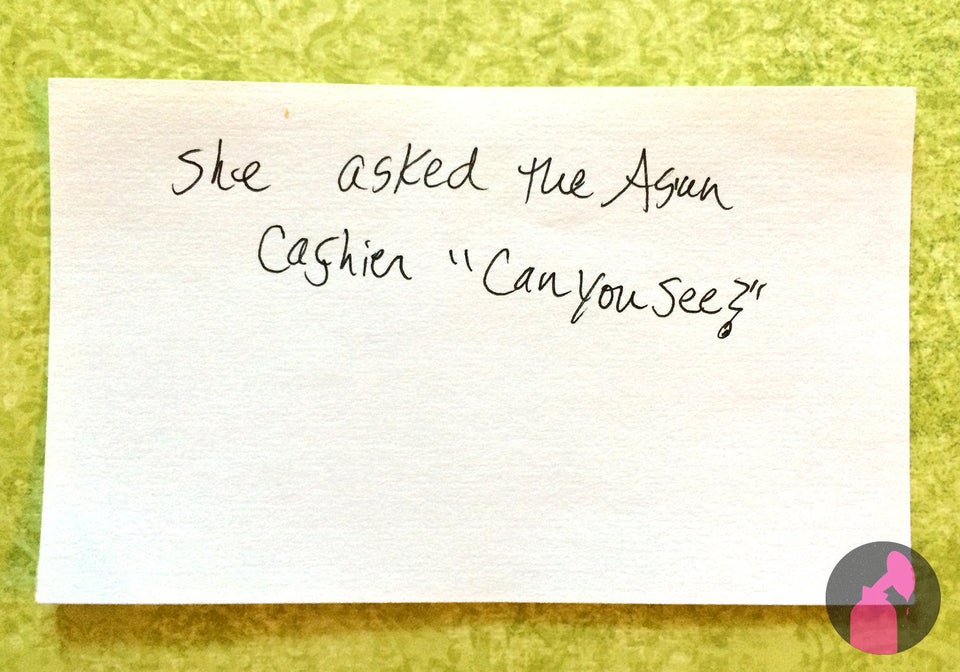 She asked the Asian
Cashier "Can You See?"